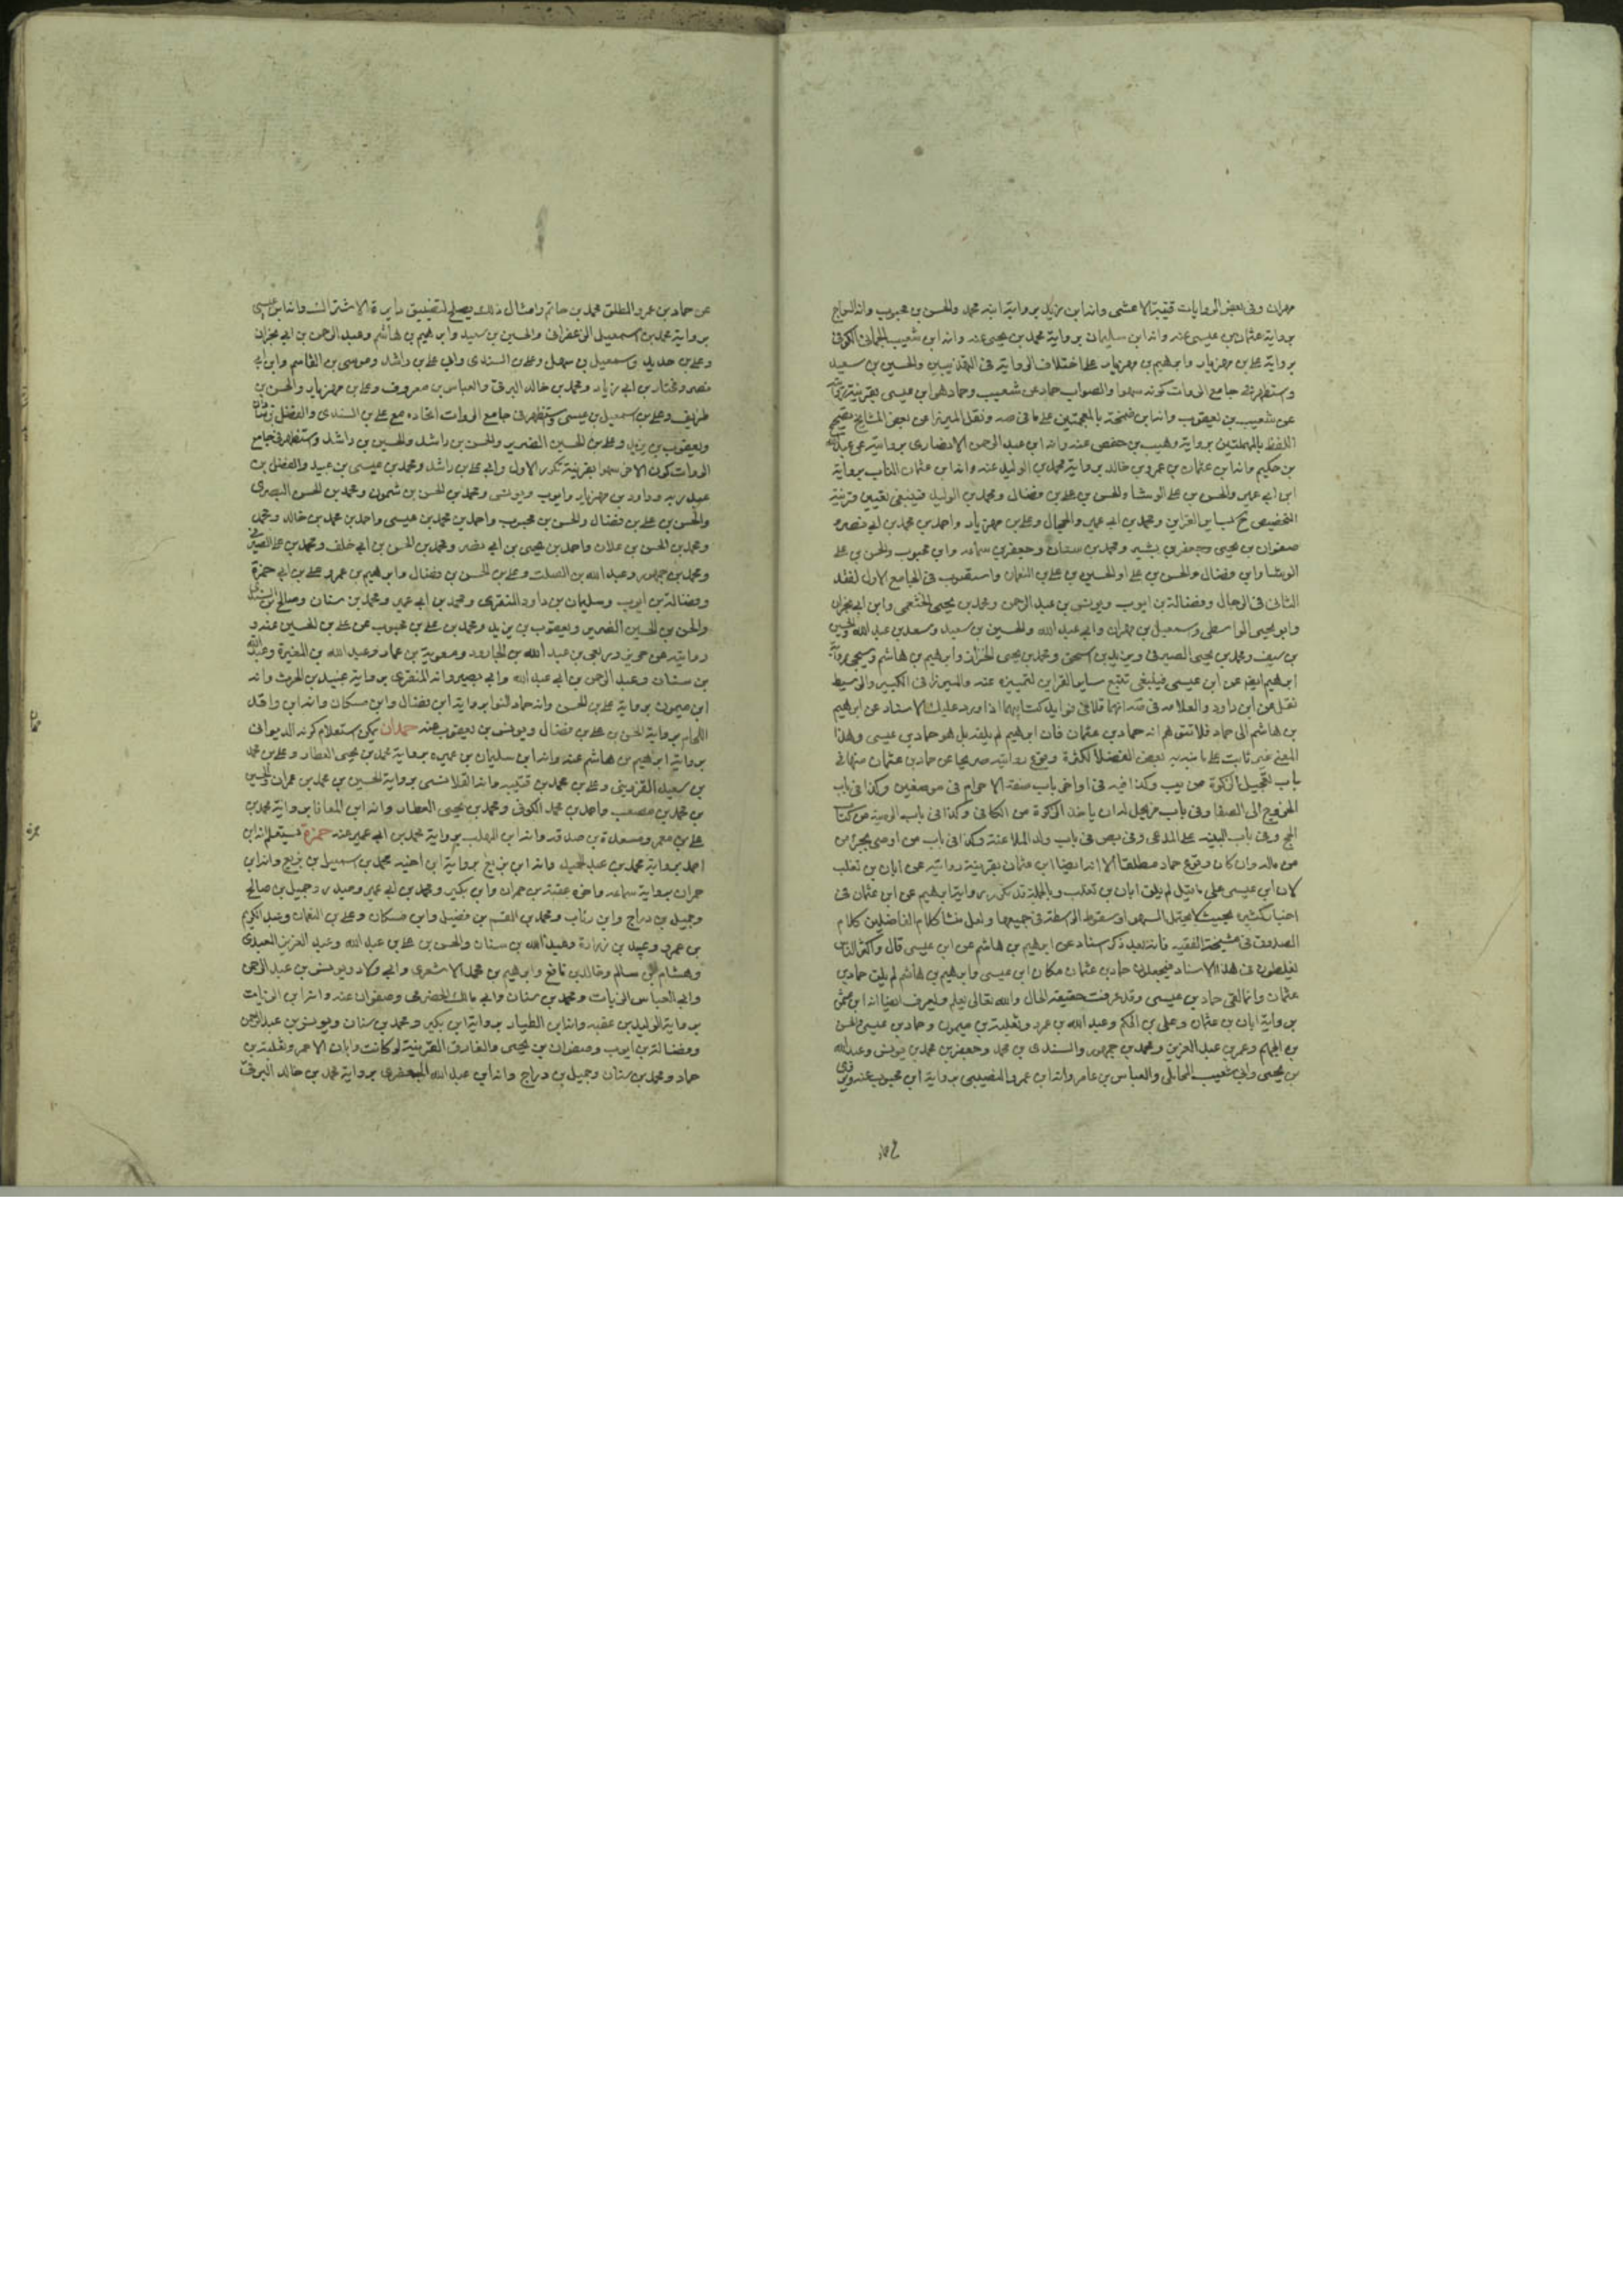 مهران وفى بعض الروايات قتيبة الاعشى وانه ابن يزيد برواية ابنه محمد والحسن بن محبوب وانه السراج
برواية عثمان بن عيسى عنه وانه ابن سليمان برواية محمد بن يحيى عنه وانه ابن شعيب الحمانى الكوفى
برواية على بن مهزيار وابرهيم بن مهزيار على اختلاف الرواية فى التهذيبين والحسين بن سعيد
واستظهر فى جامع الروات كونه سهوا والصواب حماد عن شعيب وحماد هو ابن عيسى بقرينة
عن شعيب بن يعقوب وانه ابن ضمخة بالمعجمتين على ما فى صه ونقل الميرزا عن بعض المشايخ تصحيح
اللفظ بالمهملتين برواية وهيب بن حفص عنه وانه ابن عبد الرحمن الانصارى بروايته عن عبد الله
بن حكيم وانه ابن عثمان بن عمرو بن خالد برواية محمد بن الوليد عنه وانه ابن عثمان الناب برواية
ابن ابى عمير والحسن بن على الوشا والحسن بن على بن فضال ومحمد بن الوليد فينبغى تعيين قرينة
التخصيص ح لساير القراين ومحمد بن ابى عمير والحجال وعلى بن مهزيار واحمد بن محمد بن ابى نصر و
صفوان بن يحيى وجعفر بن بشير ومحمد بن سنان وجعفر بن سماعه وابن محبوب والحسن بن على
الوشا وابن فضال والحسن بن على او الحسين بن على بن النعمان واستصوب فى الجامع الاول لفقد
الثانى فى الرجال وفضالة بن ايوب ويونس بن عبد الرحمن ومحمد بن يحيى الخثعمى وابن ابى نجران
وابو يحيى الواسطى واسمعيل بن مهران وابى عبد الله والحسين بن سعيد وسعد بن عبد الله والحسين
بن سيف ومحمد بن يحيى الصيرفى ويزيد بن اسحق ومحمد بن يحيى الخزاز وابرهيم بن هاشم وسيجئ رواية
ابرهيم ايضا عن ابن عيسى فينبغى تتبع ساير القراين لتمييزه عنه والميرزا فى الكبير والوسيط
نقل عن ابن داود والعلامه فى صه انهما قالا فى فوايد كتابيهما اذا ورد عليك الاسناد عن ابرهيم
بن هاشم الى حماد فلا تتوهم انه حماد بن عثمان فان ابرهيم لم يلقه بل هو حماد بن عيسى وهذا
المعنى غير ثابت على ما نبه به بعض الفضلا لكثرة وقوع روايته صريحا عن حماد بن عثمان منها فى
باب تعجيل الزكوة من يب وكذا فيه فى اواخر باب صفة الاحرام فى موضعين وكذا فى باب
الخروج الى الصفا وفى باب من يحل له ان ياخذ الزكوة من الكافى وكذا فى باب الوصية من كتاب
الحج وفى باب البينه على المدعى وفى بص فى باب ولد الملاعنة وكذا فى باب من اوصى بجزء من
من ماله وان كان وقوع حماد مطلقا الا انه ايضا ابن عثمان بقرينة روايته عن ابان بن تغلب
لان ابن عيسى على ما قيل لم يلق ابان بن تغلب وبالجملة قد تكرر رواية ابرهيم عن ابن عثمان فى
اخبار كثيرة بحيث لا يحتمل السهو او سقوط الواسطة فى جميعها ولعل منشا كلام الفاضلين كلام
الصدوق فى مشيخة الفقيه فانه بعد ذكر اسناد عن ابرهيم بن هاشم عن ابن عيسى قال واكثر الناس
يغلطون فى هذا الاسناد فيجعلون حماد بن عثمان مكان ابن عيسى وابرهيم بن هاشم لم يلق حماد بن
عثمان وانما لقى حماد بن عيسى وقد عرفت حقيقة الحال والله تعالى يعلم ويعرف ايضا انه ابن عثمن
برواية ابان بن عثمان وعلى بن الحكم وعبد الله بن عمرو وثعلبة بن ميمون وحماد بن عيسى والحسن
بن الجهم وعمر بن عبد العزيز ومحمد بن جمهور والسندى بن محمد وجعفر بن محمد بن يونس وعبد الله
بن يحيى وابى شعيب المحاملى والعباس بن عامر وانه ابن عمرو النصيبى برواية ابن محبوب عنه
عن حماد بن عمرو المطلق محمد بن حاتم وامثال ذلك يصلح لتضييق دايرة الاشتراك وانه ابن عيسى
برواية محمد بن اسمعيل الزعفرانى والحسين بن سعيد وابرهيم بن هاشم وعبد الرحمن بن ابى نجران
وعلى بن حديد واسمعيل بن سهل وعلى بن السندى وابى على بن راشد وموسى بن القاسم وابن ابى
نصر ومختار بن ابى زياد ومحمد بن خالد البرقى والعباس بن معروف وعلى بن مهزيار والحسن بن
ظريف وعلى بن اسمعيل بن عيسى واستظهر فى جامع الروات اتحاده مع على بن السندى والفضل بن شاذان
ويعقوب بن يزيد وعلى بن الحسين الضرير والحسن بن راشد والحسين بن راشد واستظهر فى جامع
الروات كون الاخر سهوا بقرينة تكرر الاول وابى على بن راشد ومحمد بن عيسى بن عبيد والفضل بن
عبد ربه وداود بن مهزيار وايوب ويونس ومحمد بن الحسن بن شمون ومحمد بن الحسن البصرى
والحسن بن على بن فضال والحسن بن محبوب واحمد بن محمد بن عيسى واحمد بن محمد بن خالد
ومحمد بن الحسن بن علان واحمد بن يحيى بن ابى نصر ومحمد بن الحسن بن ابى خلف ومحمد بن على الصيرفى
ومحمد بن جمهور وعبد الله بن الصلت وعلى بن الحسن بن فضال وابرهيم بن عمرو على بن ابى حمزة
وفضالة بن ايوب وسليمان بن داود المنقرى ومحمد بن ابى عمير ومحمد بن سنان وصالح بن السندى
والحسن بن الحسين الضرير ويعقوب بن يزيد ومحمد بن على بن محبوب عن على بن الحسين عنه و
روايته عن حريز وربعى بن عبد الله بن الجارود ومعوية بن عمار وعبد الله بن المغيرة وعبد الله
بن سنان وعبد الرحمن بن ابى عبد الله وابى بصير وانه المنقرى برواية عنه وانه
ابن ميمون برواية على بن الحسن وانه حماد النوا برواية ابن فضال وابن مسكان وانه ابن واقد
اللحام برواية الحسن بن على بن فضال ويونس بن يعقوب عنه حمدان يمكن استعلام كونه الديوانى
برواية ابرهيم بن هاشم عنه وانه ابن سليمان بن عميره برواية محمد بن يحيى العطار وعلى بن محمد
بن سعيد القزوينى وعلى بن محمد بن قتيبه وانه القلانسى برواية الحسين بن محمد بن عمران والحسين
بن محمد بن مصعب واحمد بن محمد الكوفى ومحمد بن يحيى العطار وانه ابن المعافا برواية محمد بن
على بن معمر ومسعدة بن صدقه وانه ابن المهلب برواية محمد بن ابى عمير عنه حمزة يستعلم انه ابن
احمد برواية محمد بن عبد الحميد وانه ابن بزيع برواية ابن اخيه محمد بن اسمعيل بن بزيع وانه ابن
حمران برواية سماعه واخيه عقبة بن حمران وابن بكير ومحمد بن ابى عمير وجميل بن صالح
وجميل بن دراج وابن رئاب ومحمد بن القسم بن فضيل وابن مسكان وعلى بن النعمان وعبد الكريم
بن عمرو وعبيد بن زرارة وعبد الله بن سنان والحسن بن على بن عبد الله وعبد العزيز العبدى
وهشام بن سالم وخالد بن نافع وابرهيم بن محمد الاشعرى وابى ولاد ويونس بن عبد الرحمن
وابى العباس الزيات ومحمد بن سنان وابى مالك الحضرمى وصفوان عنه وانه ابن الزيات
برواية الوليد بن عقبه وانه ابن الطيار برواية ابن بكير ومحمد بن سنان ويونس بن عبد الرحمن
وفضالة بن ايوب وصفوان بن يحيى والفارق القرينية لو كانت وابان الاحمر وثعلبة بن
حماد ومحمد بن سنان وجميل بن دراج وانه ابن عبد الله الجعفرى برواية محمد بن خالد البرقى
حمدان
حمزة